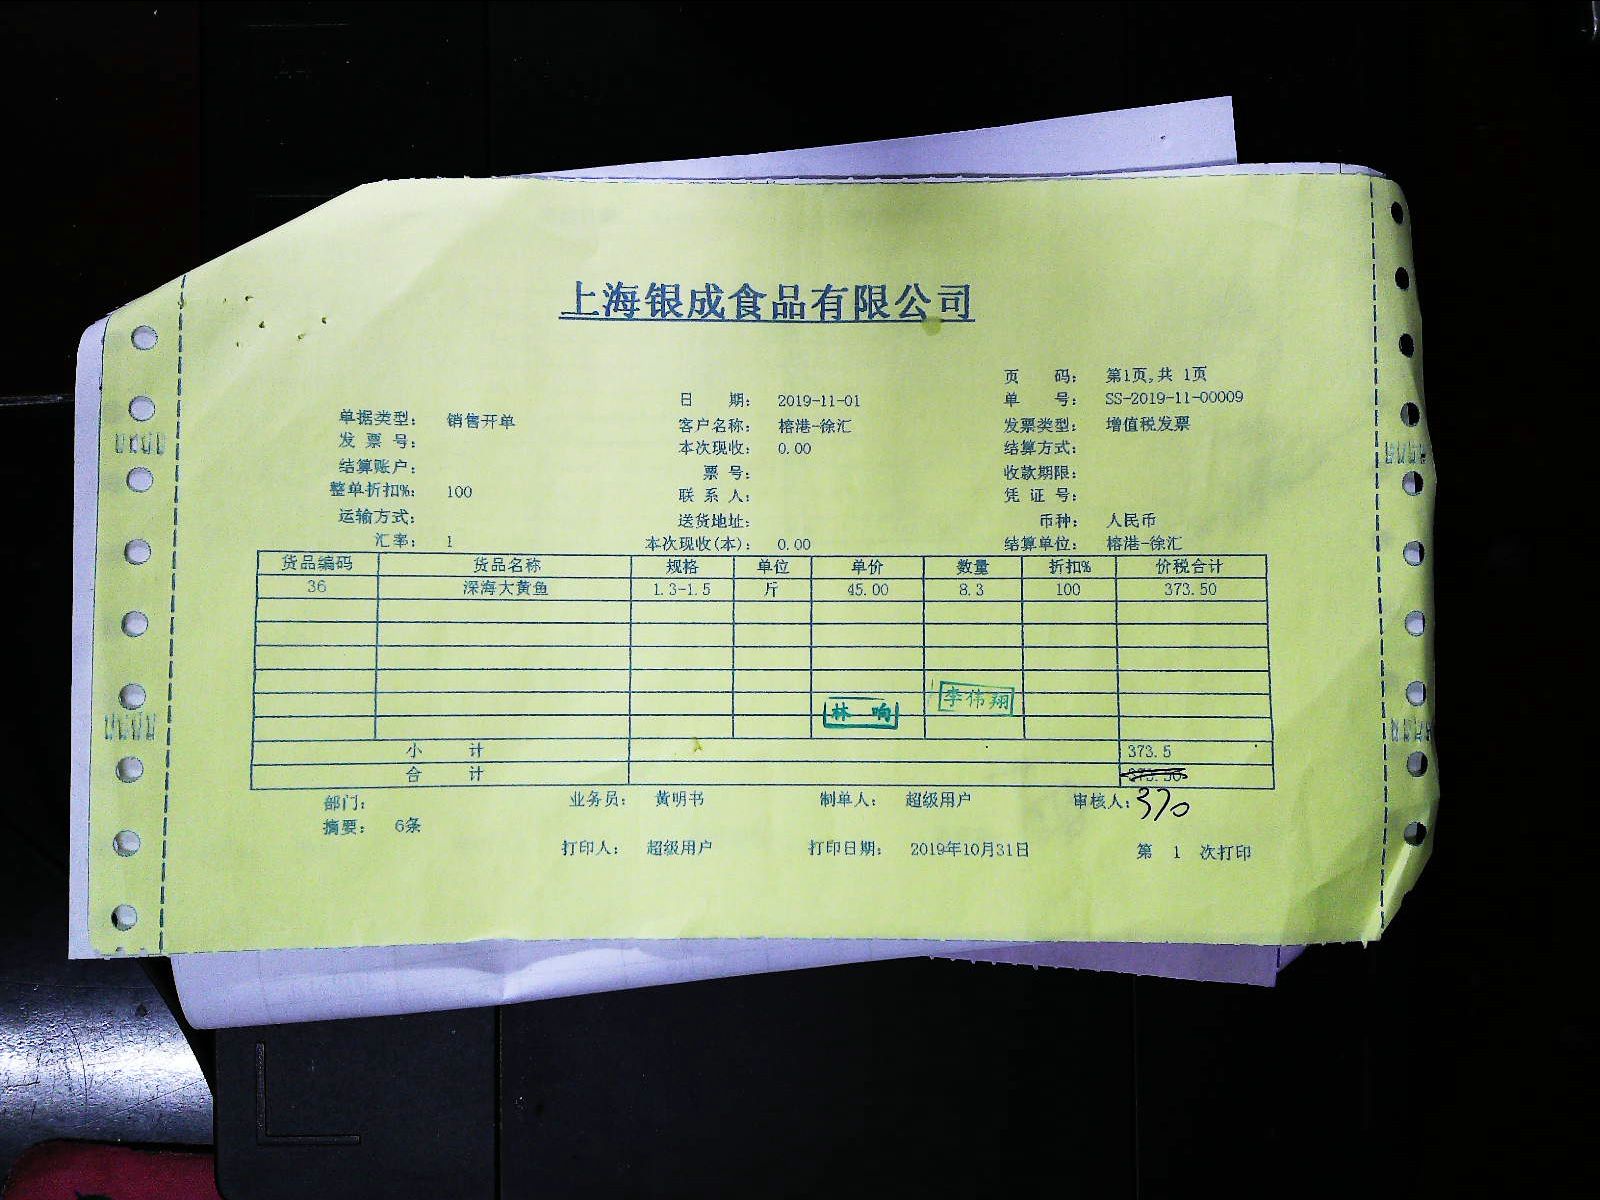 上海银成食品有限公司
页 码： 第1页,共 1页
日 期： 2019-11-01 单 号： SS-2019-11-00009
单据类型： 销售开单 客户名称： 榕港-徐汇 发票类型： 增值税发票
发 票 号： 本次现收： 0.00 结算方式：
结算账户： 票 号： 收款期限：
整单折扣%： 100 联 系 人： 凭 证 号：
运输方式： 送货地址： 币种： 人民币
汇率： 1 本次现收(本)： 0.00 结算单位： 榕港-徐汇
货品编码 货品名称 规格 单位 单价 数量 折扣% 价税合计
36 深海大黄鱼 1.3-1.5 斤 45.00 8.3 100 373.50
林 响 李伟翔
小 计 373.5
合 计 373.50
部门： 业务员： 黄明书 制单人： 超级用户 审核人： 370
摘要： 6条
打印人： 超级用户 打印日期： 2019年10月31日 第 1 次打印